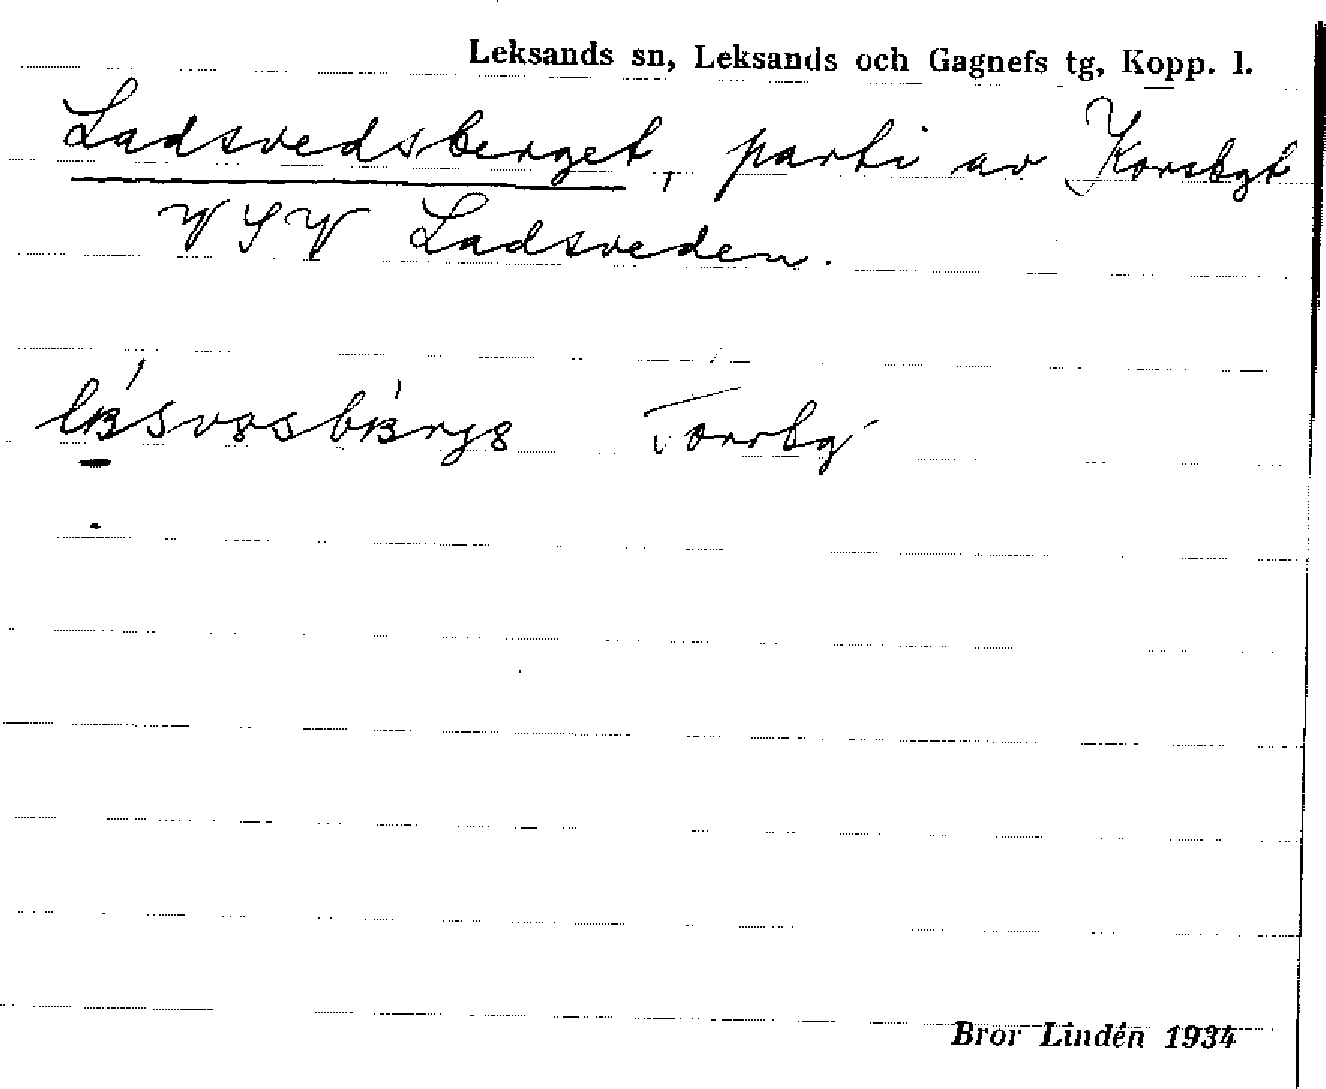 Leksands sn, Leksands och Gagnefs tg, Kopp. l.
Ladsvedsberget, parti av
VSV Ladsveden.
Torrby
Bror Lindén 1934